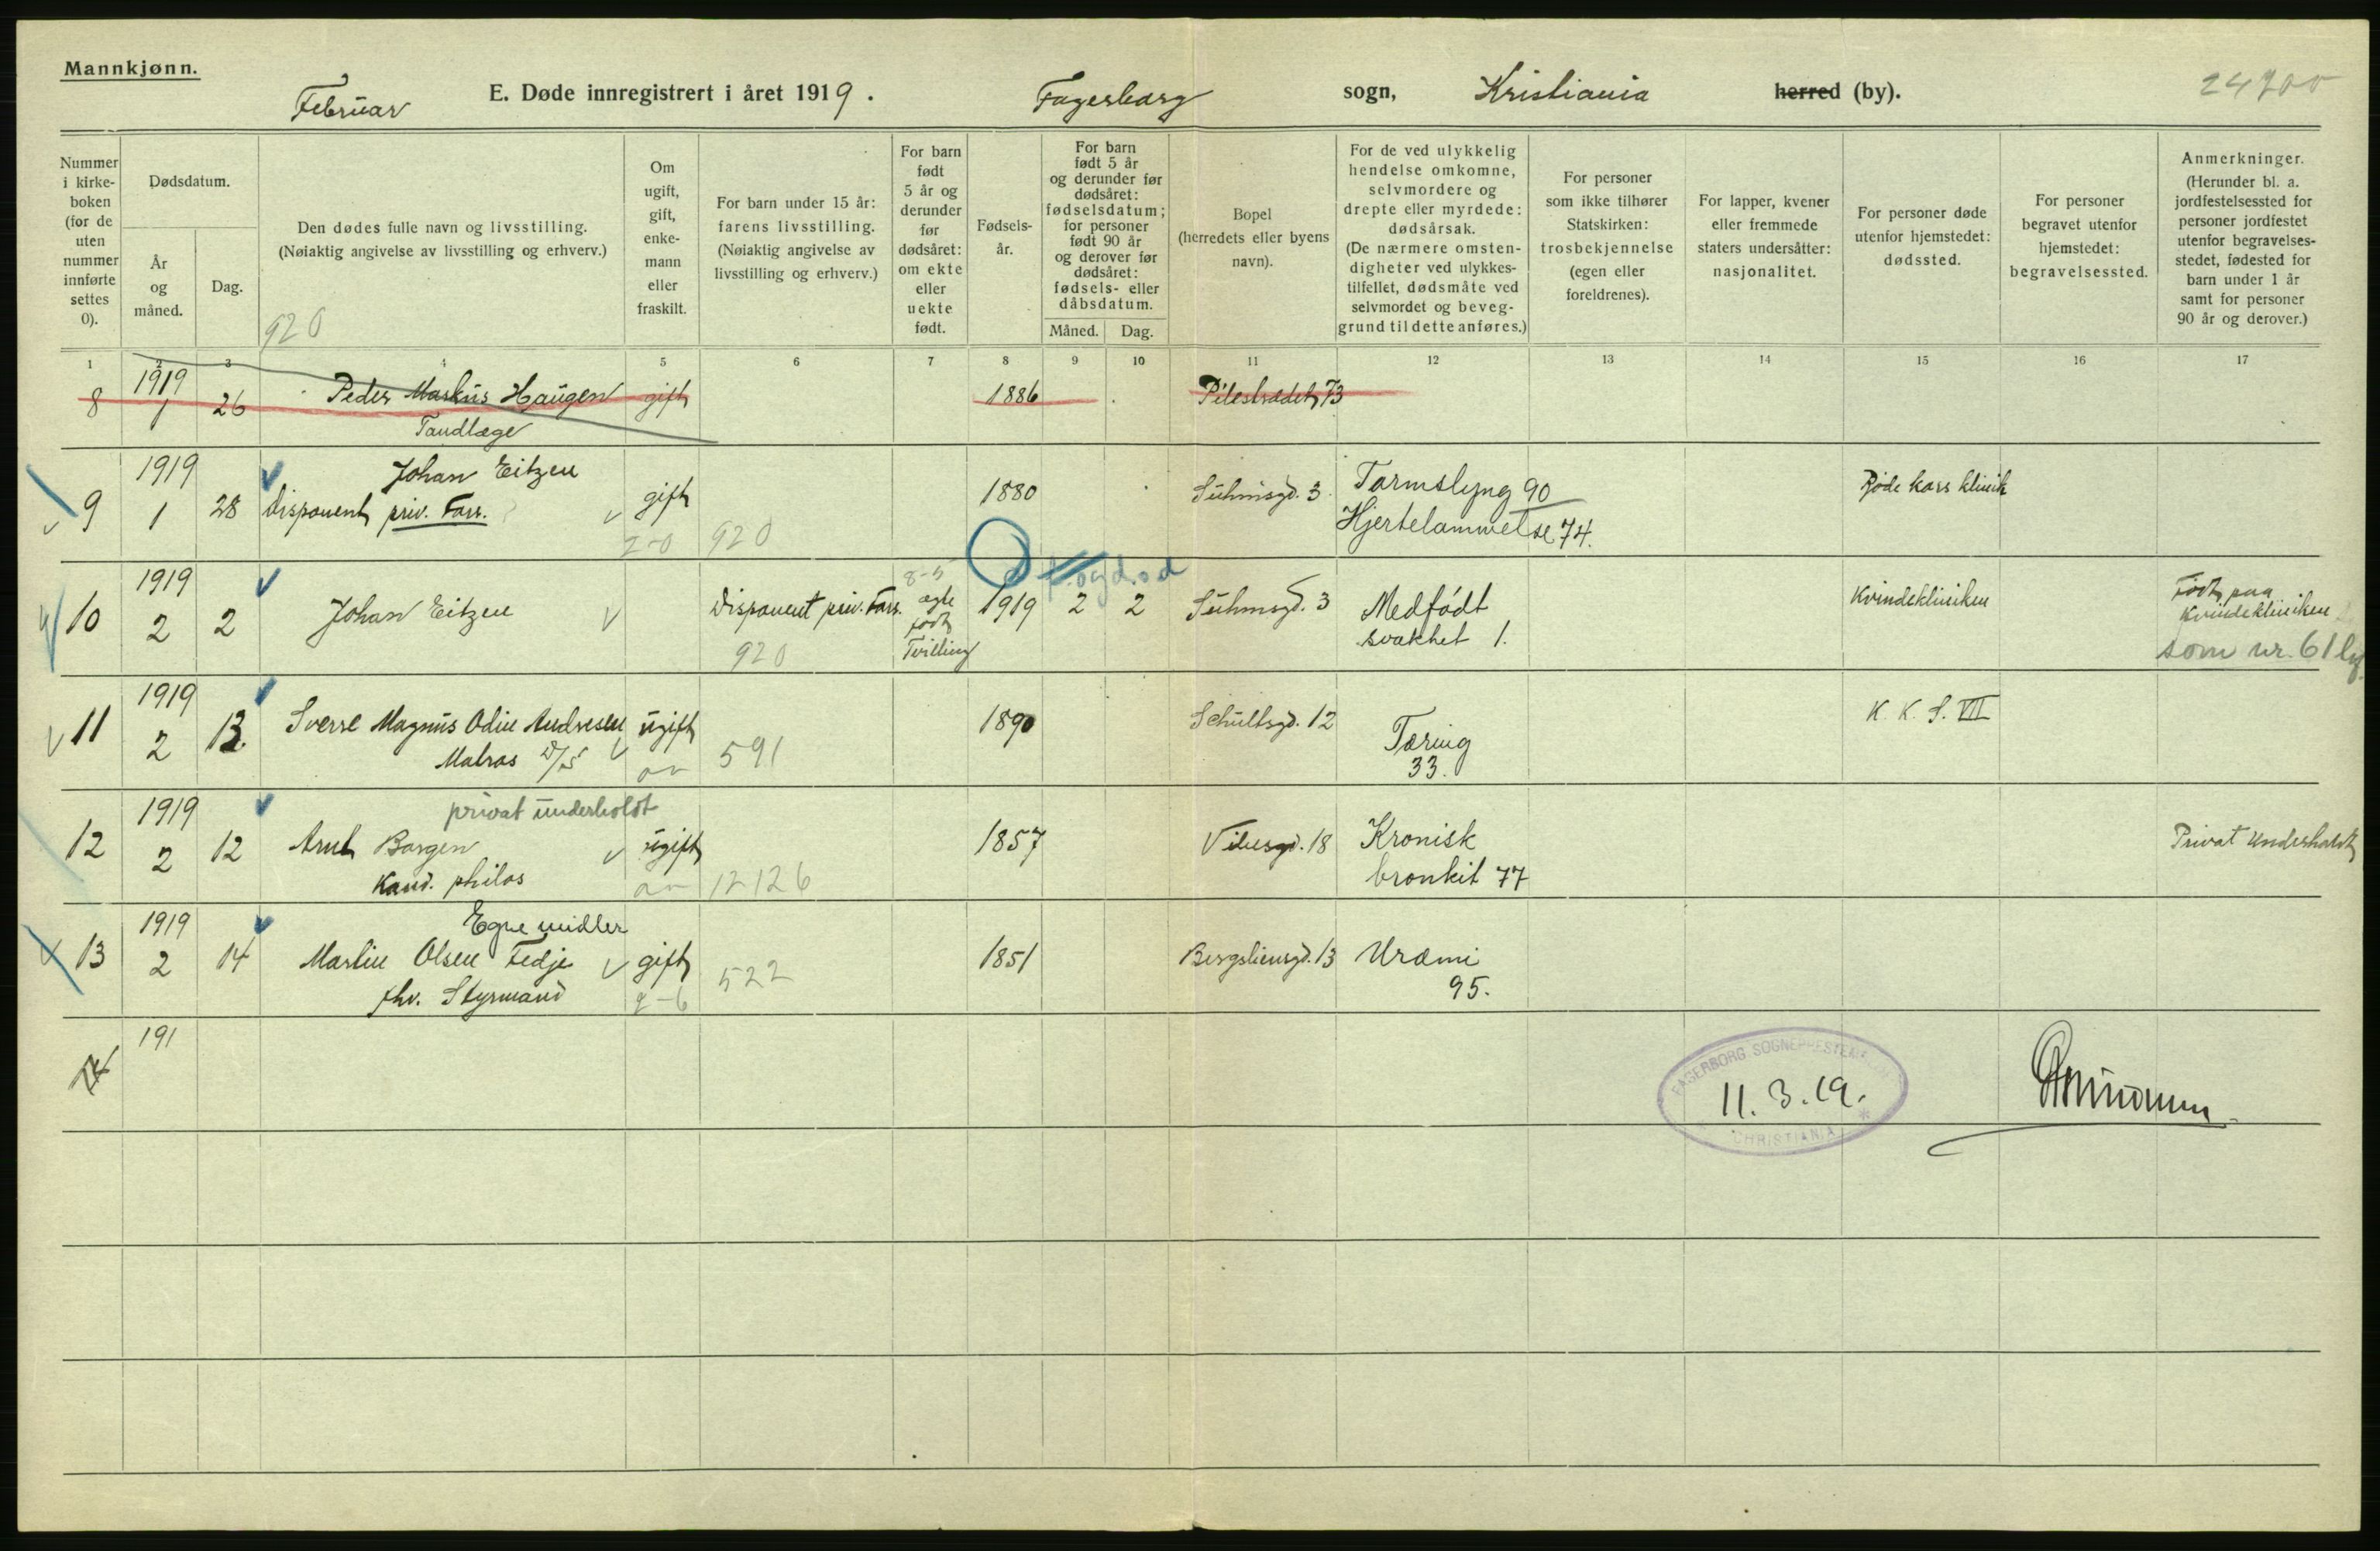 Mannkjønn.
Februar E. Døde innregistrert i året 1919. Fagerborg sogn, Kristiania herred (by).
Nummer i kirkeboken (for de uten nummer innførte settes 0).
Dødsdatum.
År og måned.
Dag.
Den dødes fulle navn og livsstilling.
(Nøiaktig angivelse av livsstilling og erhverv.)
920
Om ugift, gift, enkemann eller fraskilt.
For barn under 15 år: farens livsstilling.
(Nøiaktig angivelse av livsstilling og erhverv.)
For barn født 5 år og derunder før dødsåret: om ekte eller uekte født.
Fødselsår.
For barn født 5 år og derunder før dødsåret: fødselsdatum; for personer født 90 år og derover før dødsåret: fødsels- eller dåbsdatum.
Måned.
Dag.
Bopel (herredets eller byens navn).
For de ved ulykkelig hendelse omkomne, selvmordere og drepte eller myrdede: dødsårsak.
(De nærmere omstendigheter ved ulykkestilfellet, dødsmåte ved selvmordet og beveggrund til dette anføres.)
For personer som ikke tilhører Statskirken: trosbekjennelse (egen eller foreldrenes).
For lapper, kvener eller fremmede staters undersåtter: nasjonalitet.
For personer døde utenfor hjemstedet: dødssted.
For personer begravet utenfor hjemstedet: begravelsessted.
Anmerkninger.
(Herunder bl. a. jordfestelsessted for personer jordfestet utenfor begravelsesstedet, fødested for barn under 1 år samt for personer 90 år og derover.)
1 2 3 4 5 6 7 8 9 10 11 12 13 14 15 16 17
8 1919 1 26 Peder Markus Haugen gift 1886 Pilestrædet 73
Tandlæge
9 1919 1 28 Johan Eitzen gift 1880 Suhmsgd. 3 Tarmslyng 90 Røde Kors klinik
Disponent priv. Forr. Hjertelammelse 74.
920
10 1919 2 2 Johan Eitzen Disponent priv. Forr. ægte født Tvilling 1919 2 2 Suhmsgd. 3 Medfødt svakhet 1. Kvindekliniken Født paa Kvindekliniken
920 8-5 som nr. 61
11 1919 2 13 Sverre Magnus Odin Andresen ugift 1890 Schultsgd. 12 Tæring 33. K. K. S. VII
Matros D/S 591
12 1919 2 12 privat underholdt
Arnt Borgen ugift 1857 Vibesgd. 18 Kronisk bronkit 77 Privat Underholdt
Kand. philos 12126
13 1919 2 14 Egne midler
Martin Olsen Fedje gift 1851 Bergsliensgd. 13 Uræmi 95.
fhv. Styrmand 522
14 191
FAGERBORG SOGNEPRESTEMB
11.3.19.
CHRISTIANIA